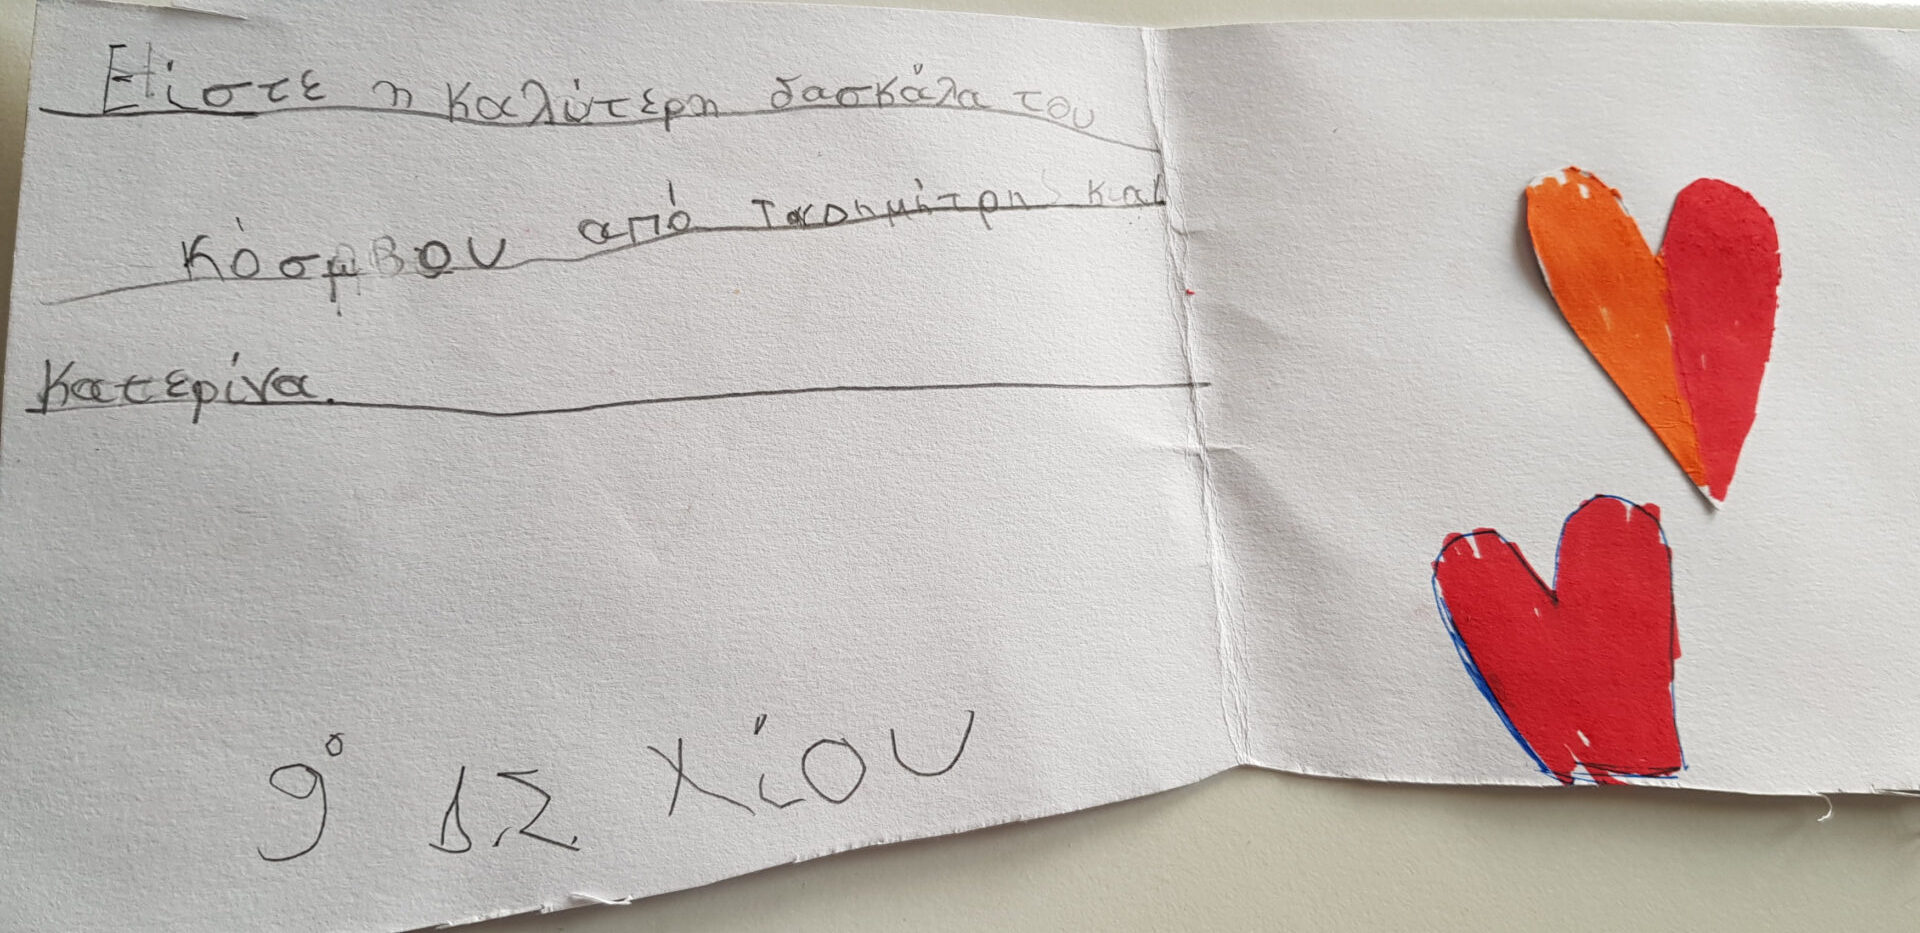 Είστε η καλύτερη δασκάλα του
κόσμου από τ Δημήτρη και
Κατερίνα.
9ο Δ.Σ. Χίου